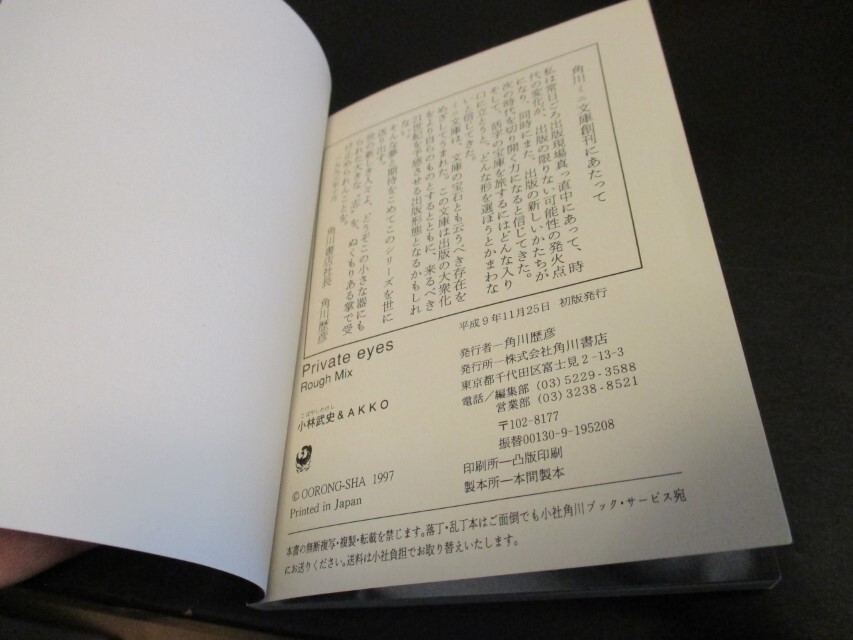 角川ミニ文庫創刊にあたって
私は常日ごろ出版現場真っ直中にあって、時
代の変化が、出版の限りない可能性の発火点
になり、同時にまた、出版の新しいかたちが
次の時代を切り開く力になると信じてきた。
そして、活字の宝庫を旅するにはどんな入り
口に立とうと、どんな形を選ぼうとかまわな
いと信じてきた。
ミニ文庫は、文庫の宝石とも云うべき存在を
めざしてうまれた。この文庫は出版の大衆化
をより自らのものとするとともに、来るべき
21世紀を予感させる出版形態となるかもしれ
ない。
そんな夢と期待をこめてこのシリーズを世に
送り出す。
世の新しき人々よ、どうぞこの小さな器にも
られた大きな
を、ぬくもりある掌で受
けとめられんことを。
角川書店社長 角川歴彦
Private eyes
Rough Mix
こばやしたけし
小林武史&AKKO
© OORONG-SHA 1997
Printed in Japan
平成9年11月25日 初版発行
発行者―角川歴彦
発行所―株式会社角川書店
東京都千代田区富士見2-13-3
電話/編集部 (03)5229-3588
営業部 (03)3238-8521
〒102-8177
振替00130-9-195208
印刷所―凸版印刷
製本所―本間製本
本書の無断複写・複製・転載を禁じます。落丁・乱丁本はご面倒でも小社角川ブック・サービス宛
にお送りください。送料は小社負担でお取り替えいたします。